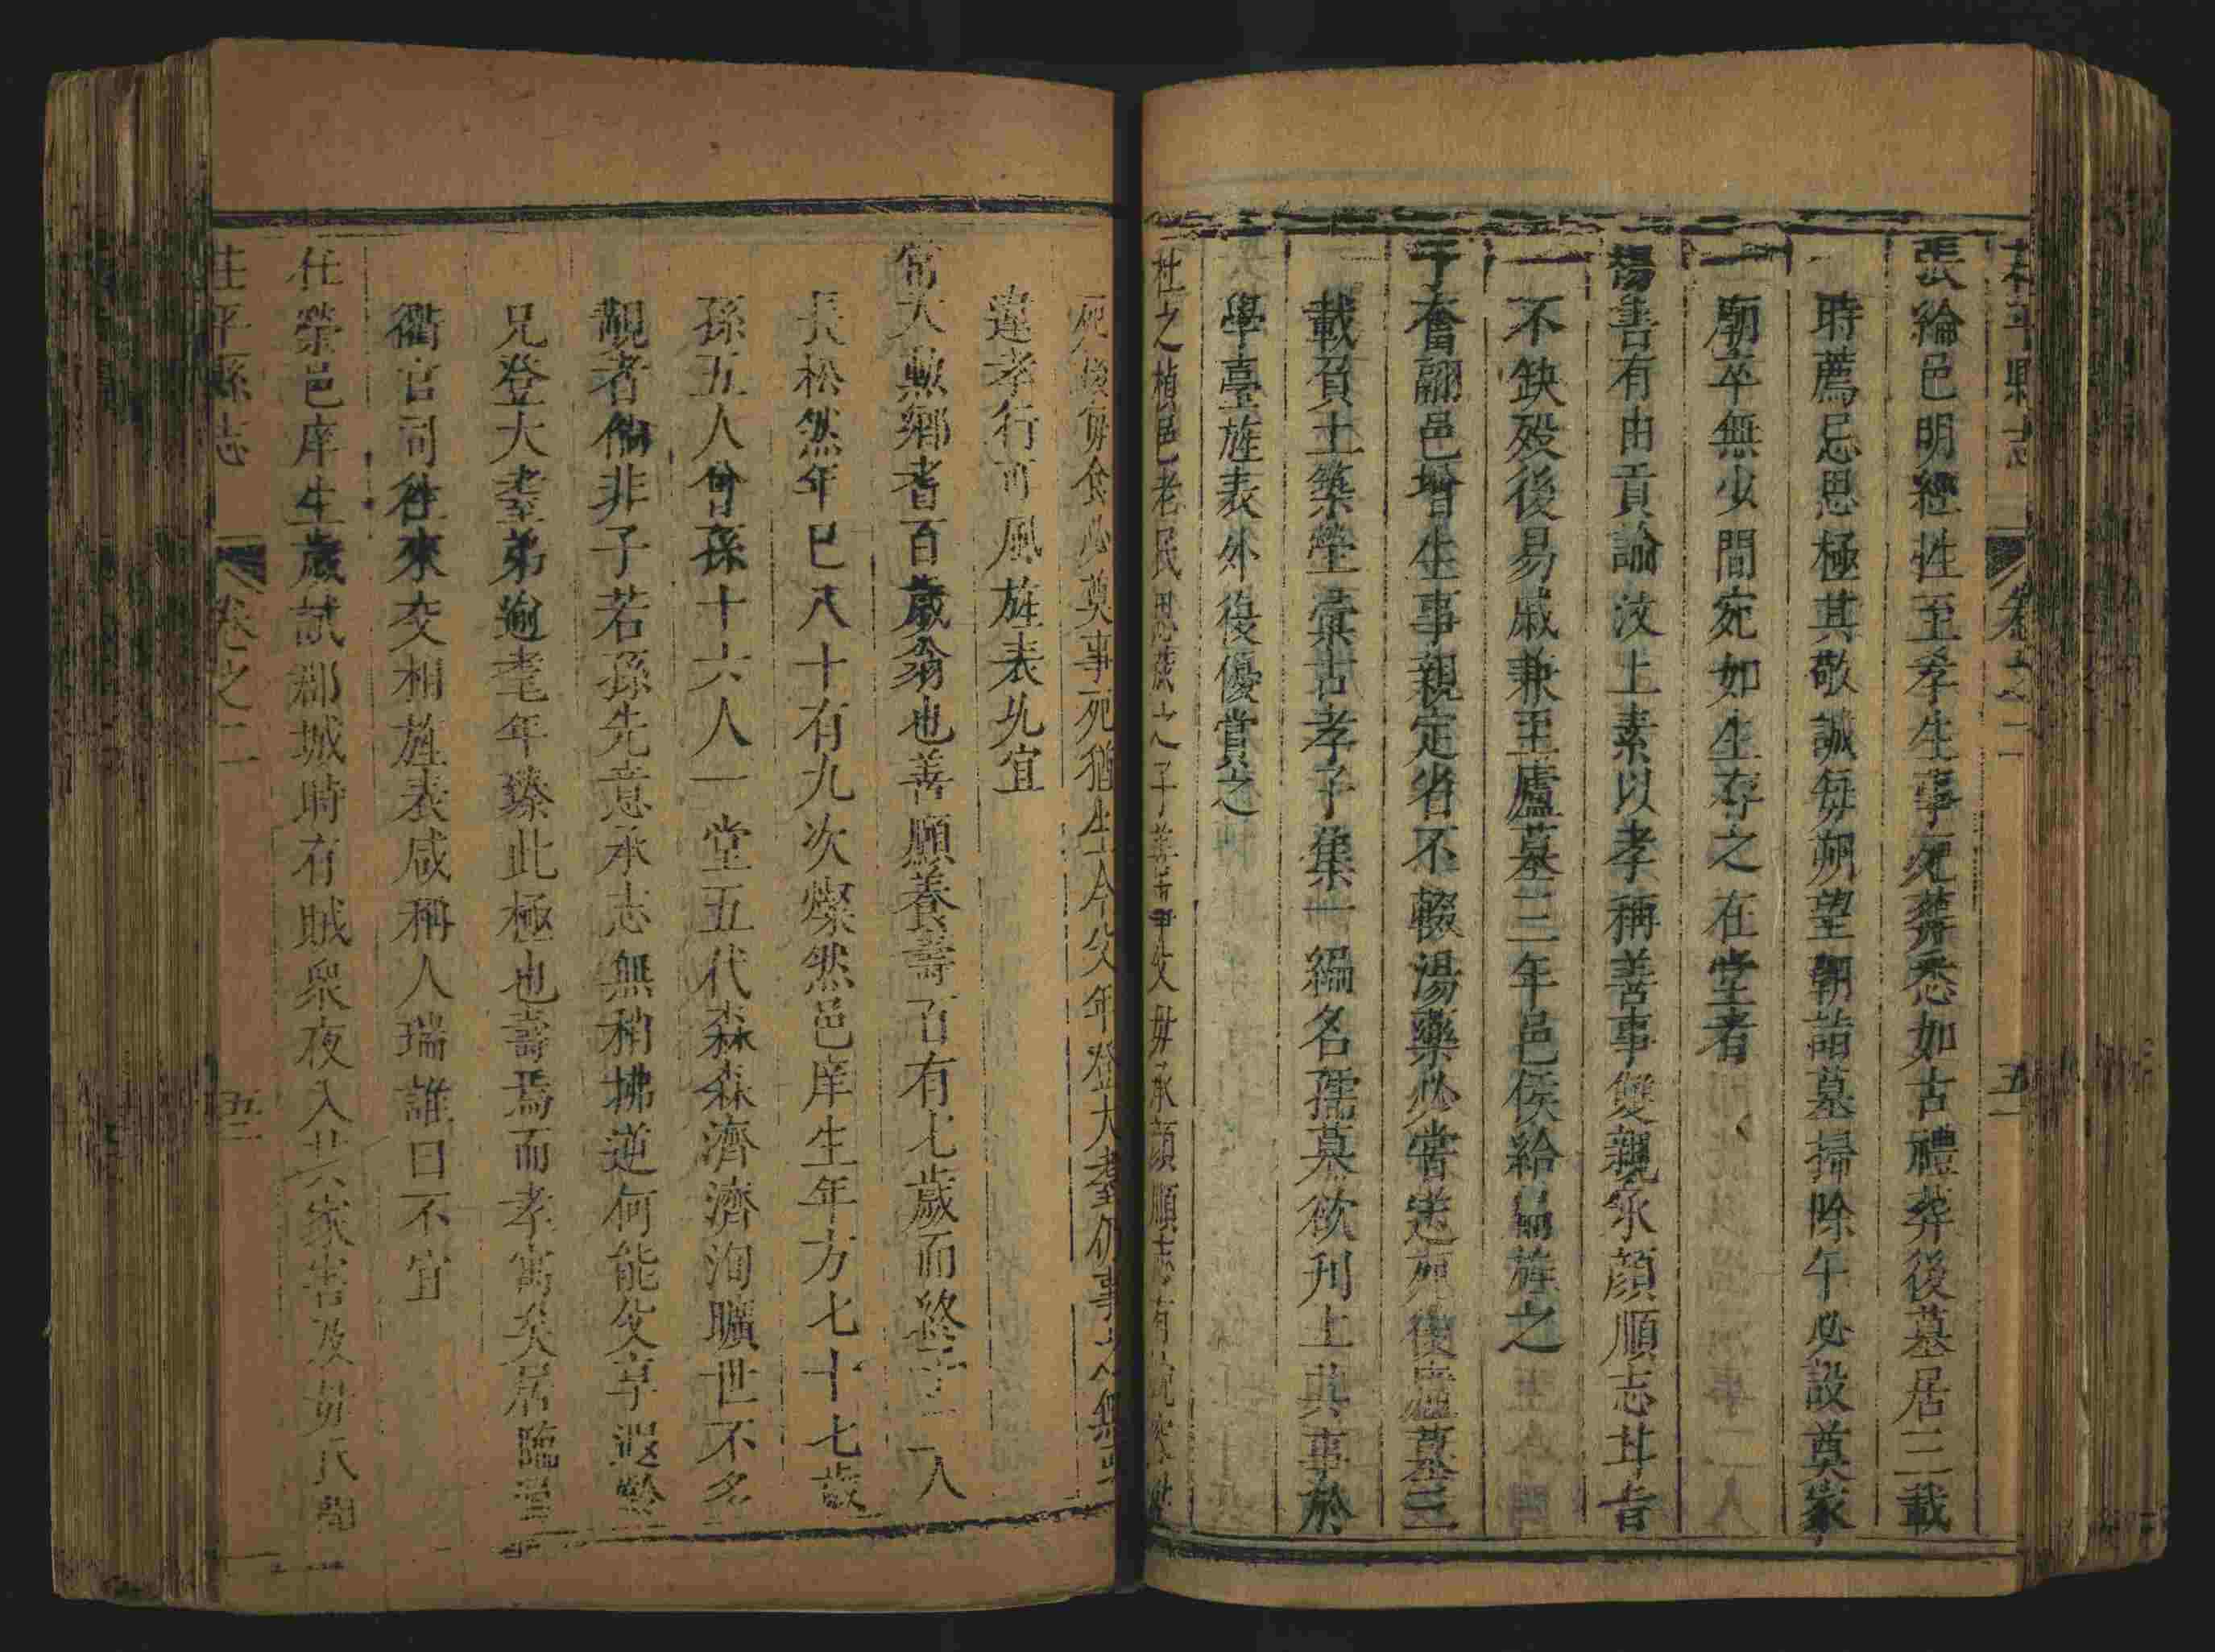 茌平縣志 卷之二 五一
張綸邑明經性至孝生事死葬悉如古禮葬後墓居三載
時薦忌思極其敬誠每朔望朝詣墓掃除午必設奠家
廟卒無少間宛如生存之在堂者
楊善有由貢諭汶上素以孝稱善事雙親承顔順志甘旨
不缺殁後易戚兼至廬墓三年邑侯給匾旌之
于奮翮邑增生事親定省不輟湯藥必嘗送死後廬墓三
載負土築塋彙古孝子集一編名孺慕欲刋上其事於
學臺旌表外復優賞之
杜之楨邑老民思茂之子善事父母承顔順志有
死後每食必奠事死猶生今父年登大耋仍事之無
違孝行可風旌表允宜
大勲鄉耆百歲翁也善願養壽百有七歲而終子二人
長松然年巳八十有九次燦然邑庠生年方七十七歲
孫五人曾孫十六人一堂五代森森濟濟洵曠世不多
覯者倘非子若孫先意承志無稍拂逆何能父享遐齡
兄登大耋弟逾耄年臻此極也壽焉而孝寓矣居臨
衢官司往來交相旌表咸稱人瑞誰曰不宜
任榮邑庠生歲試郡城時有賊衆夜入其家害及母氏聞
茌平縣志 卷之二 五二